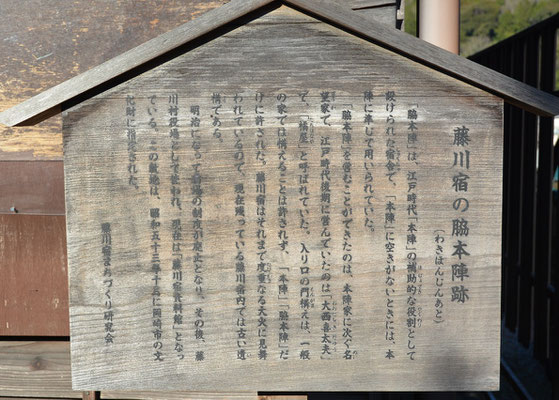 藤川宿の脇本陣跡
(わきほんじんあと)
「脇本陣」は、江戸時代「本陣」の補助的な役割として
設けられた宿舎で、「本陣」に空きがないときには、本
陣に準じて用いられていた。
「脇本陣」を営むことができたのは、本陣家に次ぐ名
望家で、江戸時代後期に営んでいたのは「大西喜太夫」
で、「橘屋」と呼ばれていた。入り口の門構えは、一般
の家では構えることは許されず、「本陣」「脇本陣」だ
けに許された。藤川宿はそれまで度重なる大火に見舞
われているので、現在残っている藤川宿内では古い遺
構である。
明治になって宿場の制度が廃止となり、その後、藤
川村役場として使われ、現在は「藤川宿資料館」となっ
ている。この敷地は、昭和五十三年十月に岡崎市の文
化財に指定された。
藤川宿まちづくり研究会